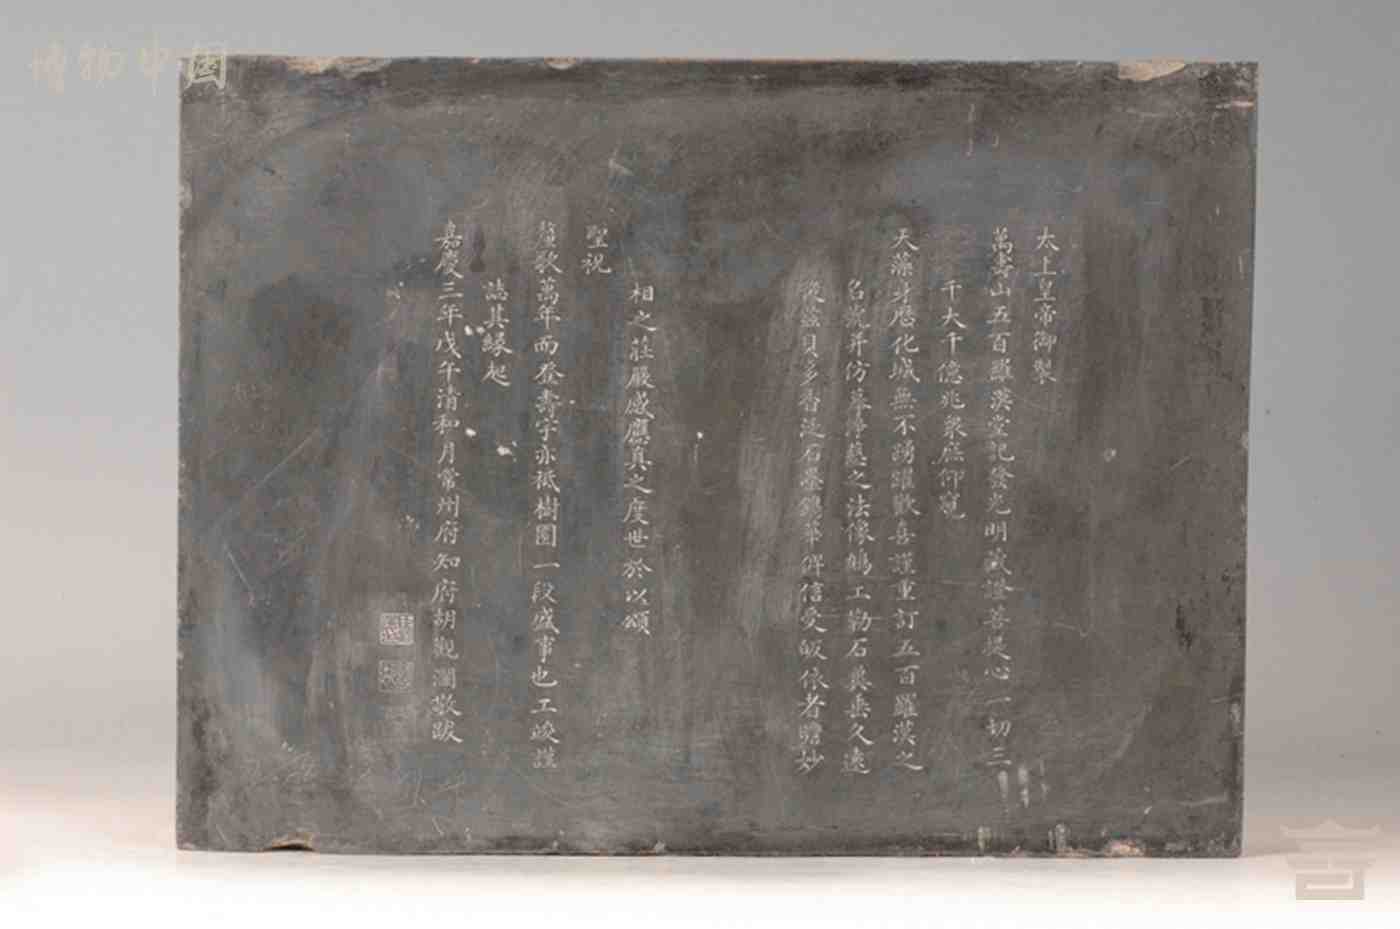 博物中国
太上皇帝御製
萬壽山五百羅漢堂記發光明藏證菩提心一切三
千大千億兆衆庶仰窺
天藻身歷化城無不踴躍歡喜謹重訂五百羅漢之
名號并仿摹梵墓之法像鳩工勒石冀垂久遠
從茲貝多香泛石臺鏡華俾信受皈依者瞻妙
相之莊嚴感應真之度世於以頌
聖祝
釐歌萬年而登壽宇亦祇樹園一段盛事也工竣謹
誌其緣起
嘉慶三年戊午清和月常州府知府胡觀瀾敬跋